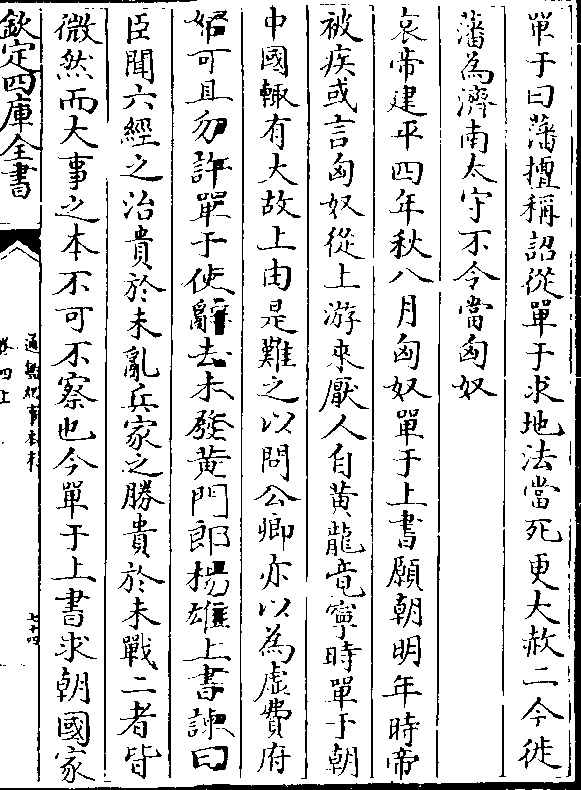 單于曰藩擅稱詔從單于求地法當死更大赦二今徙
藩為濟南太守不令當匈奴
哀帝建平四年秋八月匈奴單于上書願朝明年時帝
被疾或言匈奴從上游來厭人自黃龍竟寧時單于朝
中國輒有大故上由是難之以問公卿亦以為虛費府
帑可且勿許單于使辭去未發黃門郎楊雄上書諫曰
臣聞六經之治貴於未亂兵家之勝貴於未戰二者皆
微然而大事之本不可不察也今單于上書求朝國家
欽定四庫全書
通鑑紀事本末
卷四上
七十四